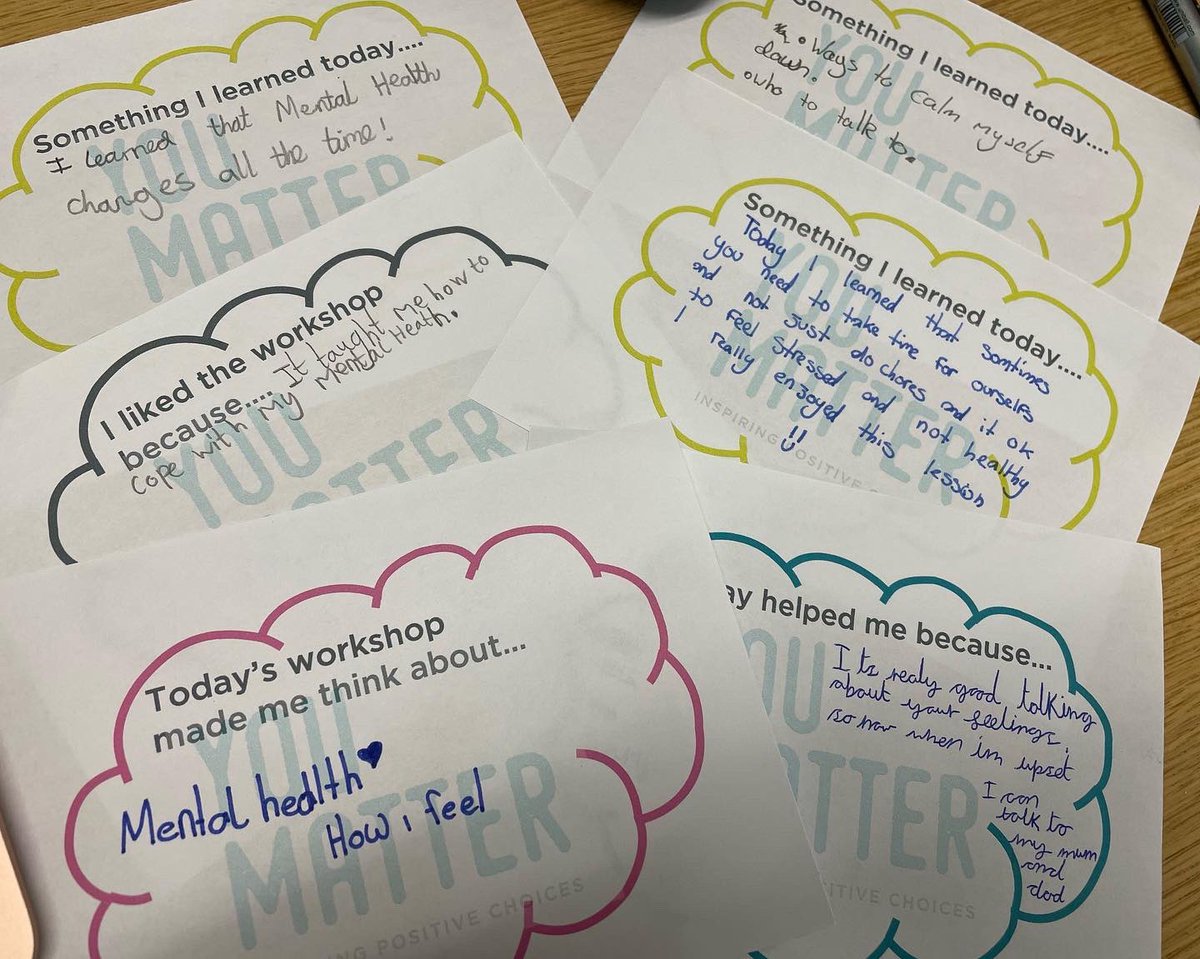 Something I learned today....
I learned that Mental Health
changes all the time!
YOU
MATTER
Something I learned today....
• Ways to calm myself
down.
• who to talk to.
YOU
MATTER
I liked the workshop
because..... It taught me how to
cope with My Mental Heath.
YOU
MATTER
Something I learned today....
Today I learned that somtimes
you need to take time for ourselfs
and not just do chores and it ok
to feel stressed and not healthy
I really enjoyed this lession
YOU
MATTER
INSPIRING POSITIVE C
Today's workshop
made me think about...
Mental health♥
How i feel
YOU
MATTER
ING POSITIVE CHOICES
ay helped me because...
Its realy good talking
about your feelings,
so now when im upset
I can
talk to
my mum
and
dad
OU
ATTER
SITIVE CHOICES